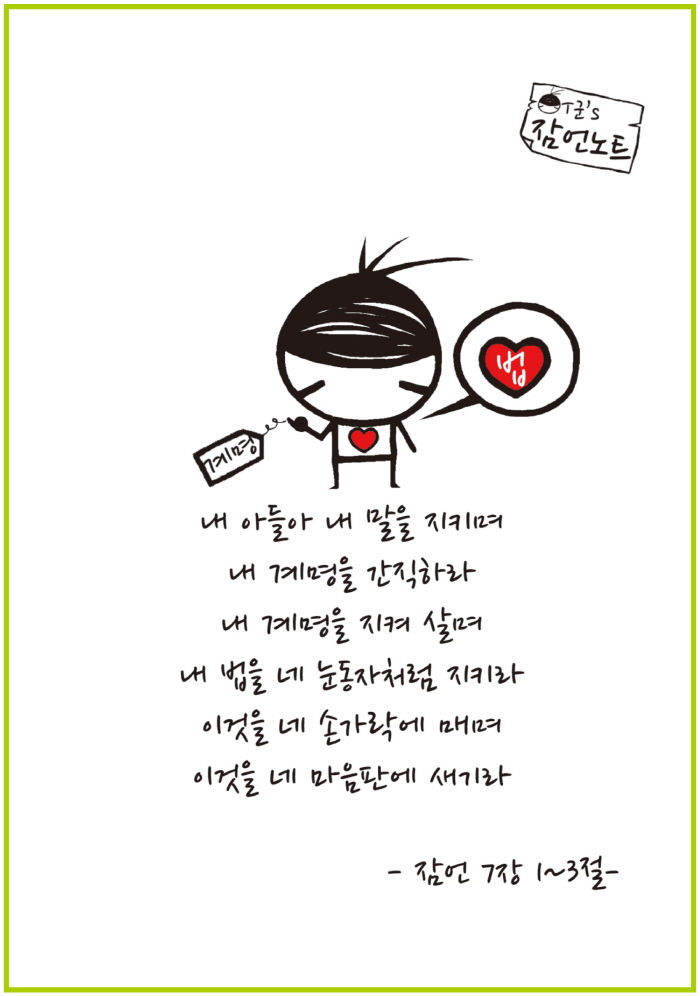 T군's
잠언노트
법
계명
내 아들아 내 말을 지키며
내 계명을 간직하라
내 계명을 지켜 살며
내 법을 네 눈동자처럼 지키라
이것을 네 손가락에 매며
이것을 네 마음판에 새기라
- 잠언 7장 1~3절-